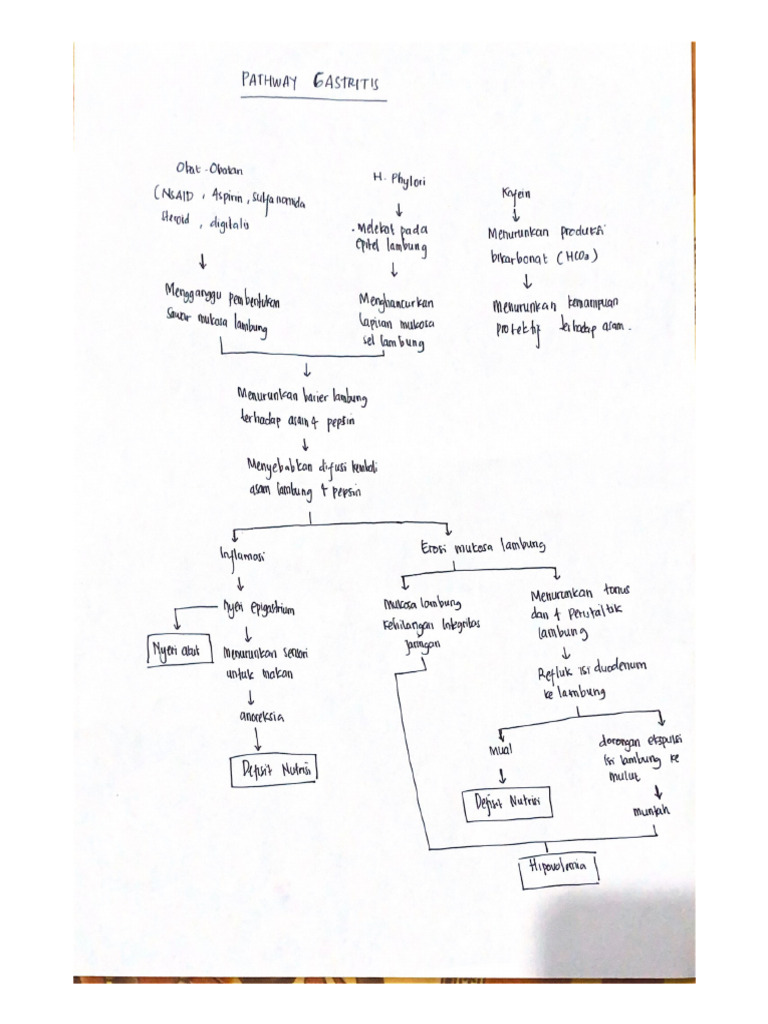 PATHWAY GASTRITIS
Obat-Obatan
(NSAID, Aspirin, sulfanomida
steroid, digitalis
H. Phylori
Kafein
Mengganggu pembentukan
sawar mukosa lambung
Melekat pada
epitel lambung
Menghancurkan
lapisan mukosa
sel lambung
Menurunkan produksi
bikarbonat (HCO3)
Menurunkan kemampuan
protektif terhadap asam.
Menurunkan barier lambung
terhadap asam & pepsin
Menyebabkan difusi kembali
asam lambung & pepsin
Inflamasi
Erosi mukosa lambung
Nyeri epigastrium
Nyeri akut
Menurunkan sensori
untuk makan
anoreksia
Defisit Nutrisi
Mukosa lambung
kehilangan integritas
Jaringan
Menurunkan tonus
dan & Peristaltik
lambung
Refluk isi duodenum
ke lambung
Mual
Defisit Nutrisi
dorongan ekspulsi
isi lambung ke
mulut
muntah
Hipovolemia